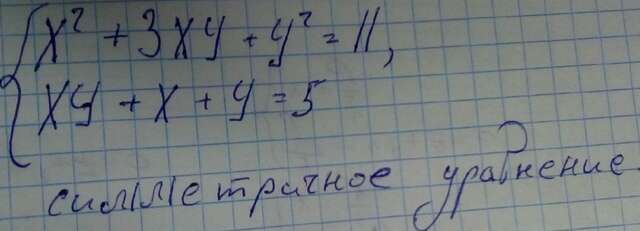 x² + 3xy + y² = 11,
xy + x + y = 5
симметричное уравнение